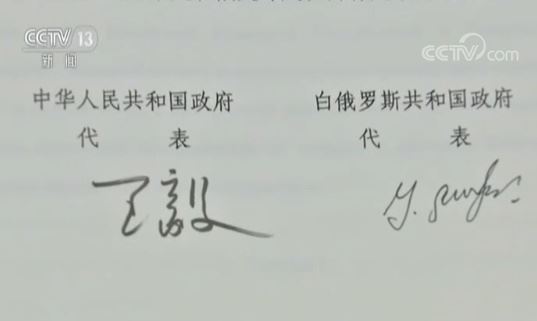 CCTV 13
新闻
CCTV.com
中华人民共和国政府
代 表
王毅
白俄罗斯共和国政府
代 表